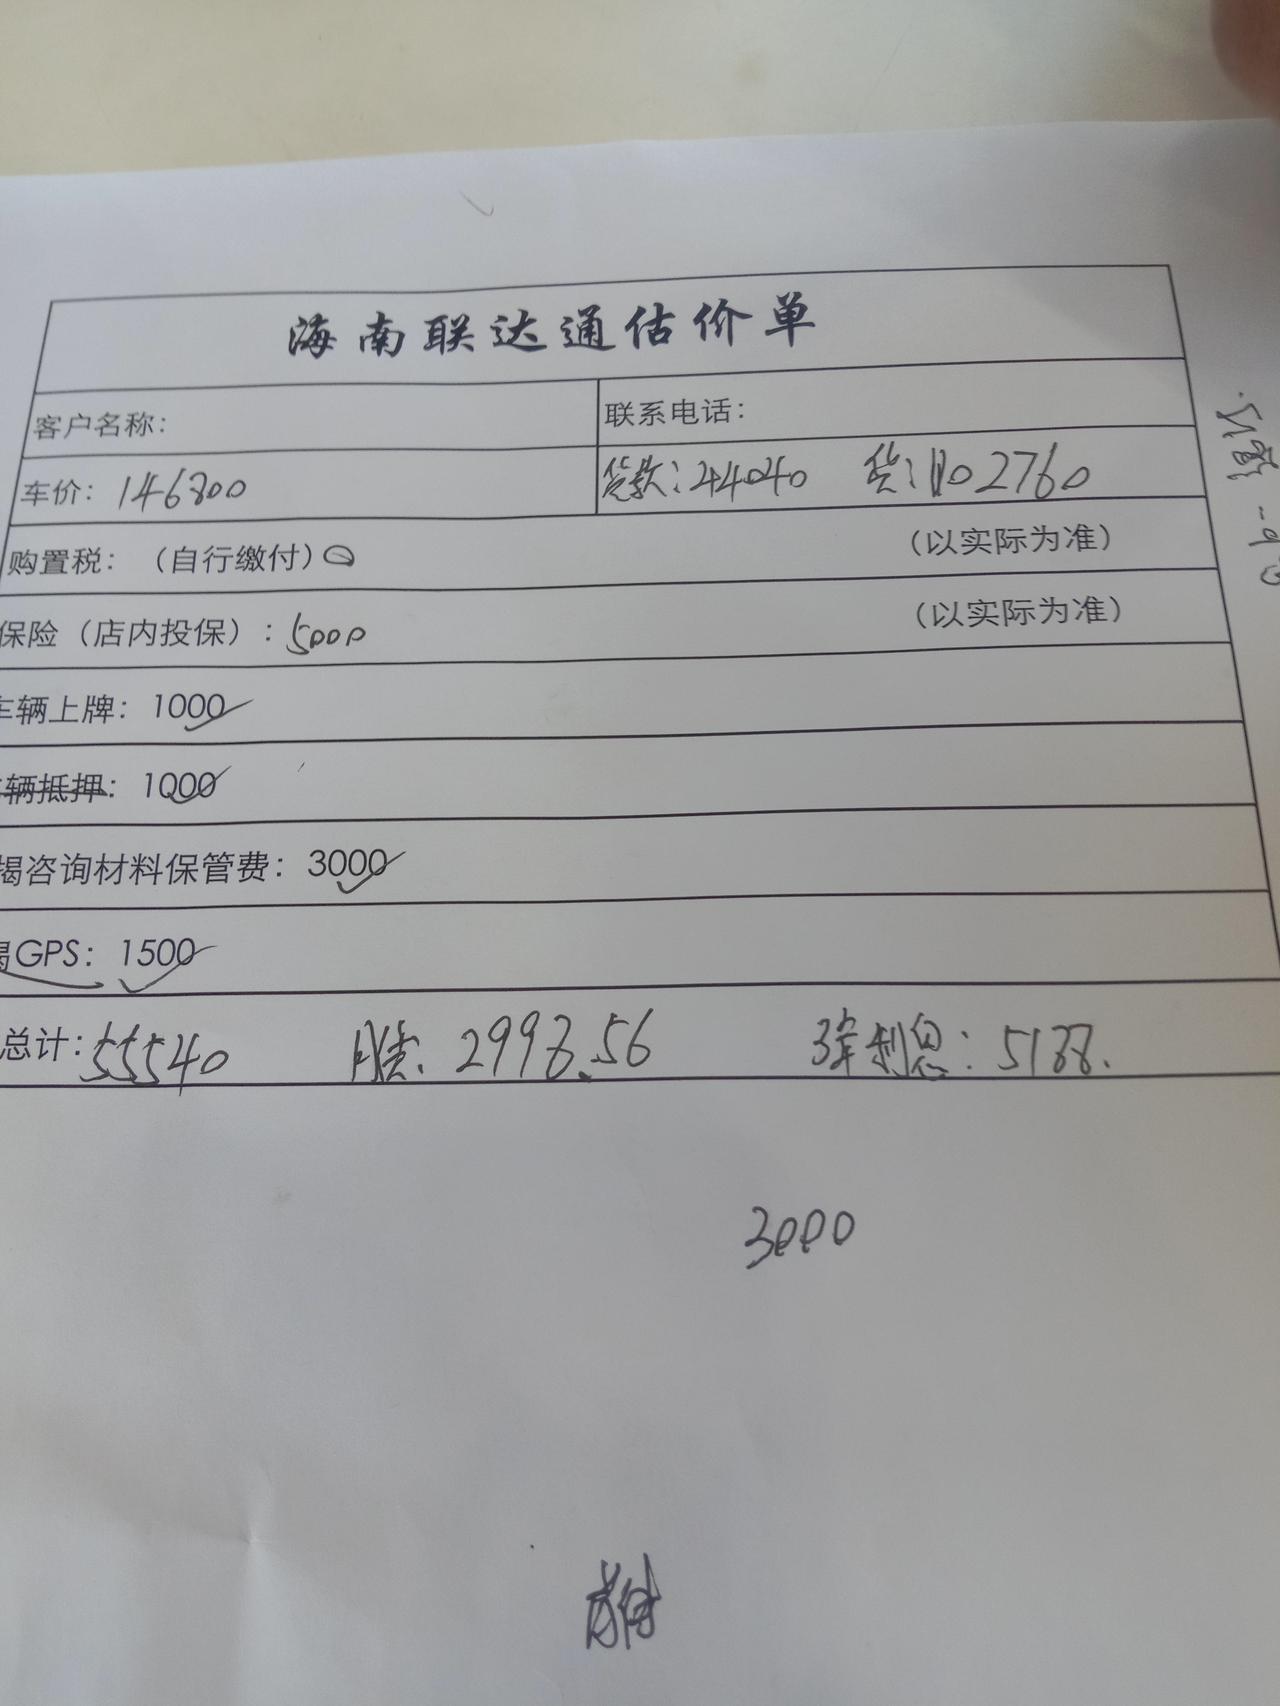 海南联达通估价单
客户名称: 联系电话:
车价: 146800 贷款: 44040 贷: 102760
购置税: (自行缴付) 0 (以实际为准)
保险 (店内投保) : 5000 (以实际为准)
车辆上牌: 1000
辆抵押: 1000
揭咨询材料保管费: 3000
揭GPS: 1500
总计: 55540 月贷: 2998.56 3年利息: 5188.
3000